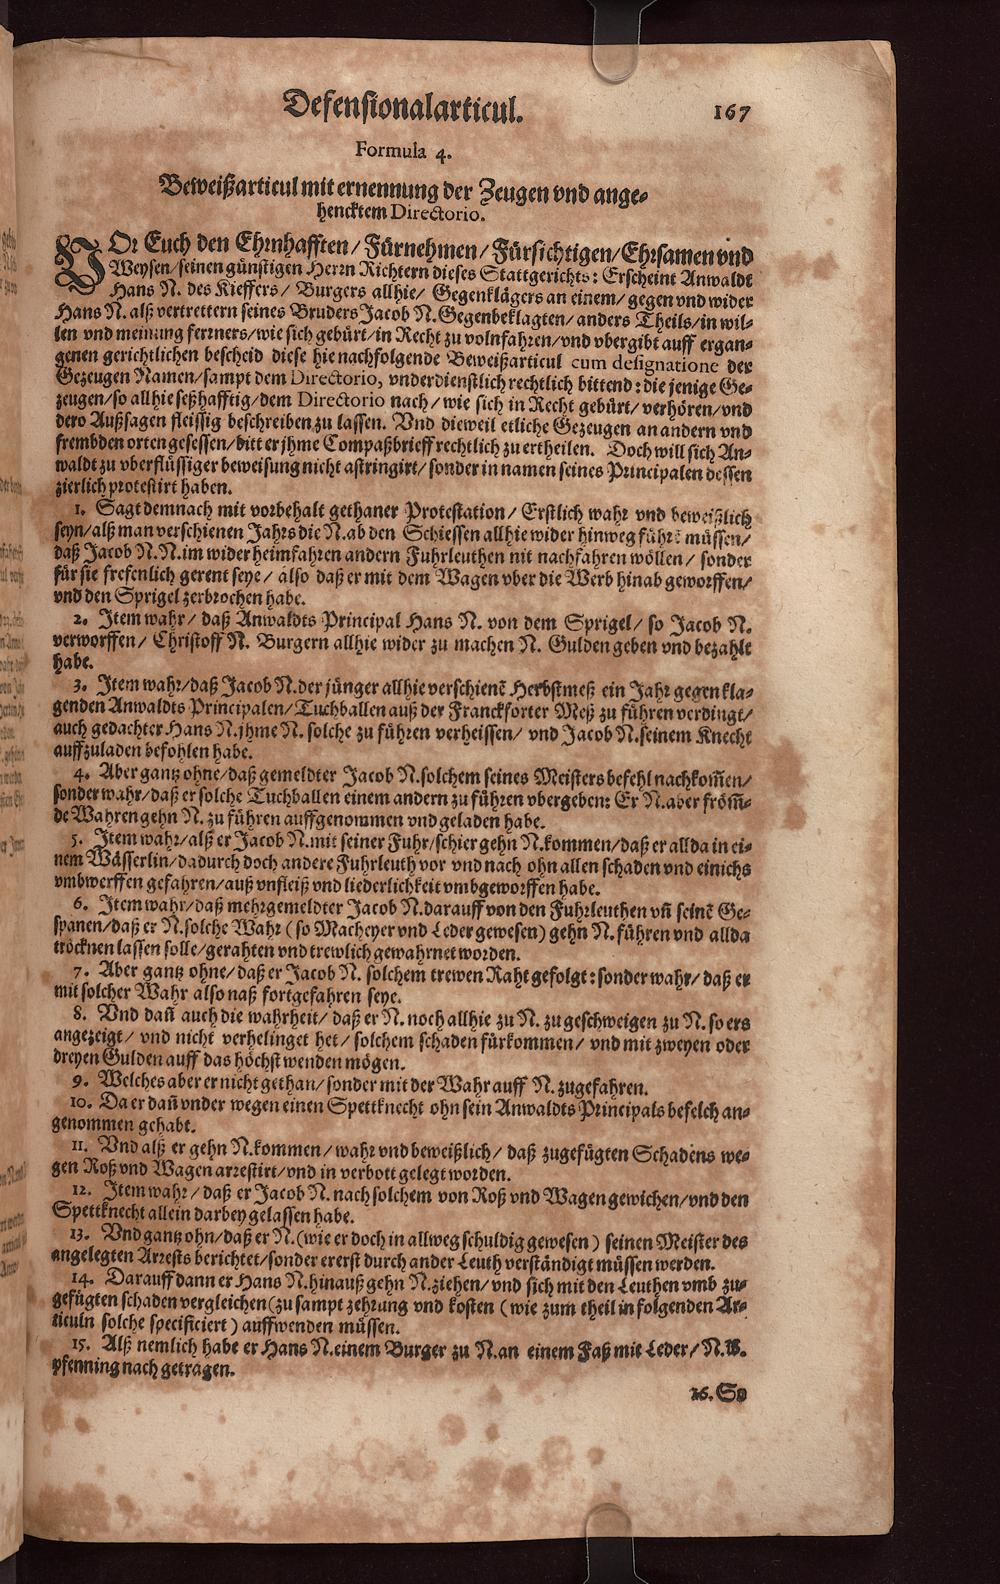 Defensionalarticul. 167
Formula 4.
Beweißarticul mit ernennung der Zeugen vnd ange-
hencktem Directorio.
VOr Euch den Ehrnhafften/ Fürnehmen/ Fürsichtigen/ Ehrsamen vnd
Weysen/ seinen günstigen Herrn Richtern dieses Stattgerichts: Erscheint Anwaldt
Hans N. des Kieffers/ Burgers allhie/ Gegenklägers an einem/ gegen vnd wider
Hans N. alß vertrettern seines Bruders Jacob N. Gegenbeklagten/ anders Theils/ in wil-
len vnd meinung ferrners/ wie sich gebürt/ in Recht zu volnfahren/ vnd vbergibt auff ergan-
genen gerichtlichen bescheid diese hie nachfolgende Beweißarticul cum designatione der
Gezeugen Namen/ sampt dem Directorio, vnderdienstlich rechtlich bittend: die jenige Ge-
zeugen/ so allhie seßhafftig/ dem Directorio nach/ wie sich in Recht gebürt/ verhören/ vnd
dero Außsagen fleissig beschreiben zu lassen. Vnd dieweil etliche Gezeugen an andern vnd
frembden orten gesessen/ bitt er jhme Compaßbrieff rechtlich zu ertheilen. Doch will sich An-
waldt zu vberflüssiger beweisung nicht astringirt/ sonder in namen seines Principalen dessen
zierlich protestirt haben.
1. Sagt demnach mit vorbehalt gethaner Protestation/ Erstlich wahr vnd beweißlich
seyn/ alß man verschienen Jahrs die N. ab den Schiessen allhie wider hinweg führē müssen/
daß Jacob N. N. im wider heimfahren andern Fuhrleuthen nit nachfahren wöllen/ sonder
für sie frefenlich gerent seye/ also daß er mit dem Wagen vber die Werb hinab geworffen/
vnd den Sprigel zerbrochen habe.
2. Item wahr/ daß Anwaldts Principal Hans N. von dem Sprigel/ so Jacob N.
verworffen/ Christoff N. Burgern allhie wider zu machen N. Gulden geben vnd bezahlt
habe.
3. Item wahr/ daß Jacob N. der jünger allhie verschienē Herbstmeß ein Jahr gegen kla-
genden Anwaldts Principalen/ Tuchballen auß der Franckforter Meß zu führen verdingt/
auch gedachter Hans N. jhme N. solche zu führen verheissen/ vnd Jacob N. seinem Knecht
auffzuladen befohlen habe.
4. Aber gantz ohne/ daß gemeldter Jacob N. solchem seines Meisters befehl nachkom̄en/
sonder wahr/ daß er solche Tuchballen einem andern zu führen vbergeben: Er N. aber fröm̄-
de Wahren gehn N. zu führen auffgenommen vnd geladen habe.
5. Item wahr/ alß er Jacob N. mit seiner Fuhr/ schier gehn N. kommen/ daß er allda in ei-
nem Wässerlin/ dadurch doch andere Fuhrleuth vor vnd nach ohn allen schaden vnd einichs
vmbwerffen gefahren/ auß vnfleiß vnd liederlichkeit vmbgeworffen habe.
6. Item wahr/ daß mehrgemeldter Jacob N. darauff von den Fuhrleuthen vn̄ seinē Ge-
spanen/ daß er N. solche Wahr (so Macheyer vnd Leder gewesen) gehn N. führen vnd allda
tröcknen lassen solle/ gerahten vnd trewlich gewahrnet worden.
7. Aber gantz ohne/ daß er Jacob N. solchem trewen Raht gefolgt: sonder wahr/ daß er
mit solcher Wahr also naß fortgefahren seye.
8. Vnd dan̄ auch die wahrheit/ daß er N. noch allhie zu N. zu geschweigen zu N. so ers
angezeigt/ vnd nicht verhelinget het/ solchem schaden fürkommen/ vnd mit zweyen oder
dreyen Gulden auff das höchst wenden mögen.
9. Welches aber er nicht gethan/ sonder mit der Wahr auff N. zugefahren.
10. Da er dan̄ vnder wegen einen Spettknecht ohn sein Anwaldts Principals befelch an-
genommen gehabt.
11. Vnd alß er gehn N. kommen/ wahr vnd beweißlich/ daß zugefügten Schadens we-
gen Roß vnd Wagen arrestirt/ vnd in verbott gelegt worden.
12. Item wahr/ daß er Jacob N. nach solchem von Roß vnd Wagen gewichen/ vnd den
Spettknecht allein darbey gelassen habe.
13. Vnd gantz ohn/ daß er N. (wie er doch in allweg schuldig gewesen) seinen Meister des
angelegten Arrests berichtet/ sonder er erst durch ander Leuth verständigt müssen werden.
14. Darauff dann er Hans N. hinauß gehn N. ziehen/ vnd sich mit den Leuthen vmb zu-
gefügten schaden vergleichen (zu sampt zehrung vnd kosten (wie zum theil in folgenden Ar-
ticuln solche specificiert) auffwenden müssen.
15. Alß nemlich habe er Hans N. einem Burger zu N. an einem Faß mit Leder/ N. ß.
pfenning nach getragen.
16. So